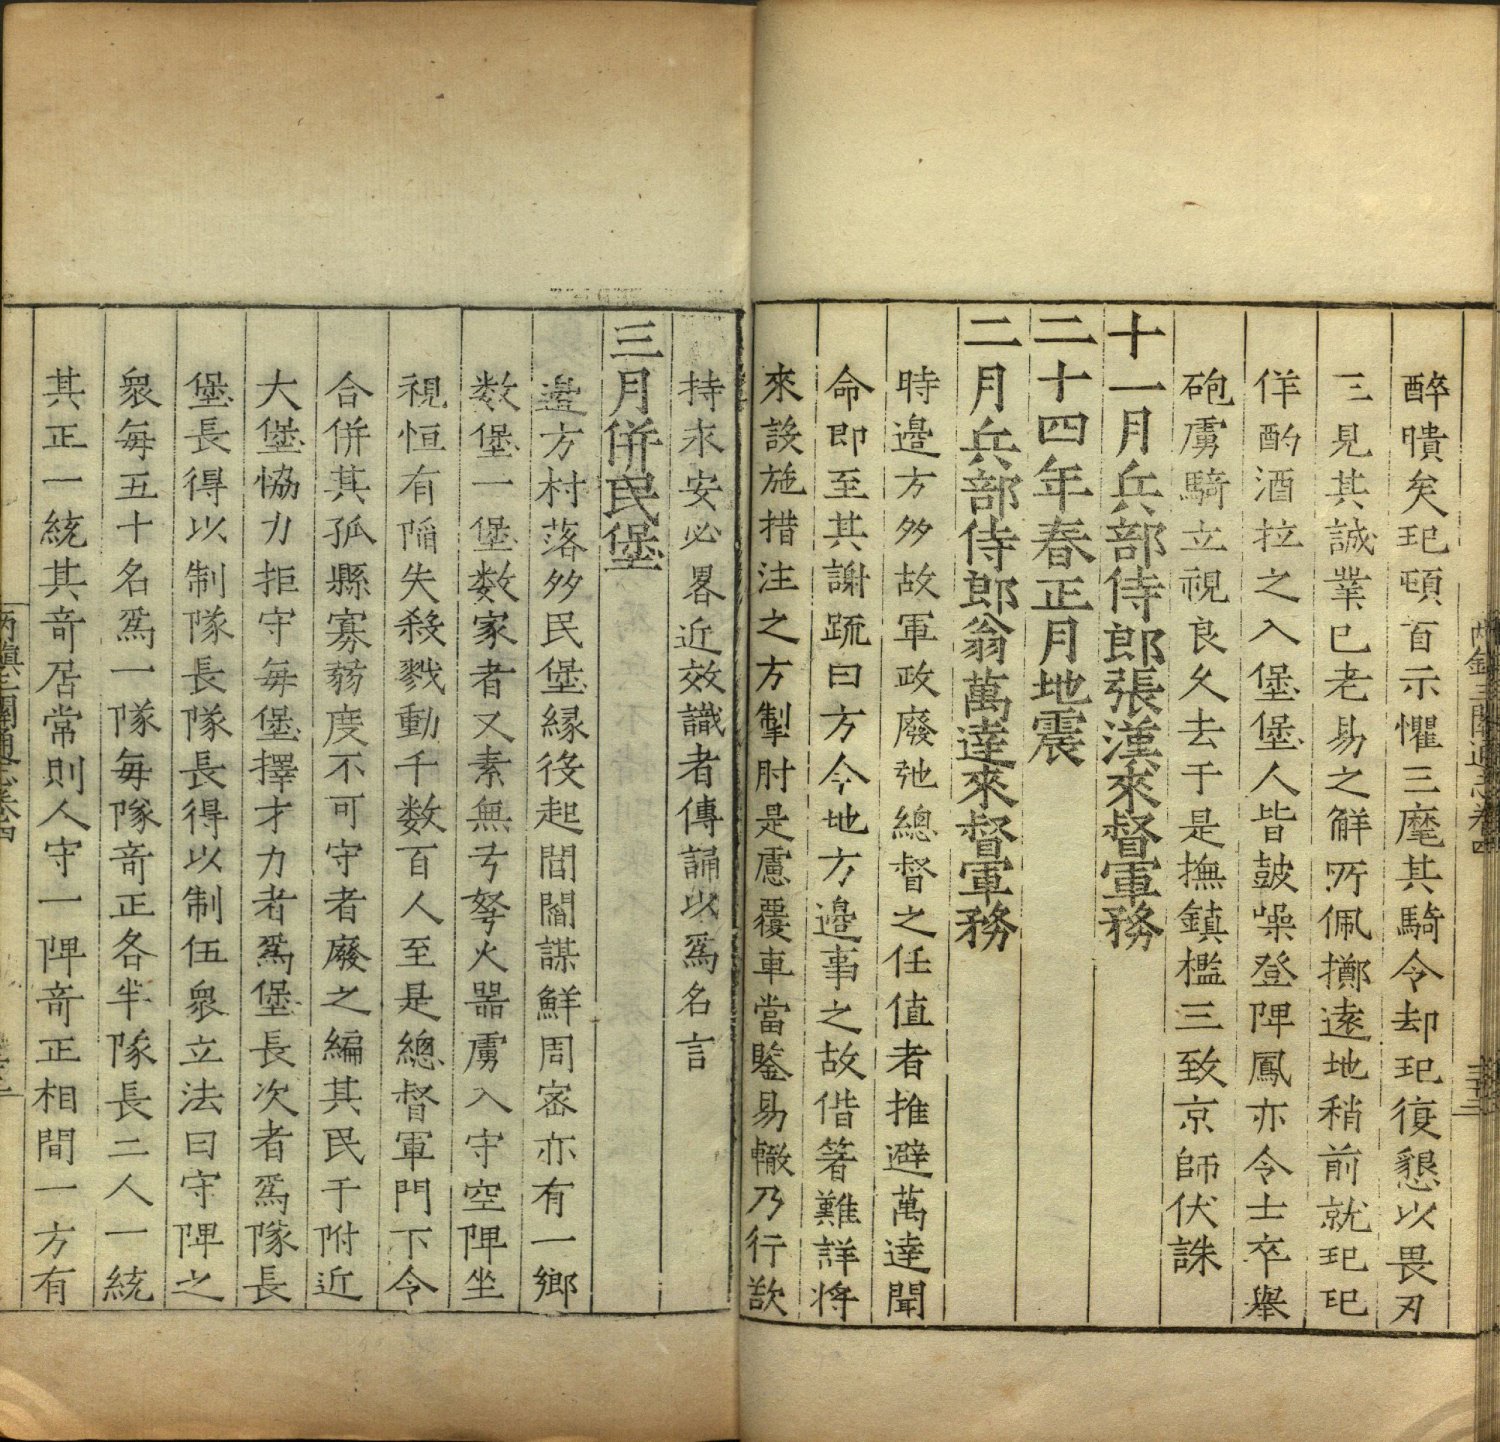 醉曊矣玘頓首示懼三麾其騎令却玘復懇以畏刃
三見其誠業已老易之觧所佩擲遠地稍前就玘玘
佯酌酒拉之入堡堡人皆鼓噪登陴鳳亦令士卒舉
砲虜騎立視良久去于是撫鎮檻三致京師伏誅
十一月兵部侍郎張漢來督軍務
二十四年春正月地震
二月兵部侍郎翁萬達來督軍務
時邊方多故軍政廢弛總督之任值者推避萬達聞
命即至其謝疏曰方今地方邊事之故借箸難詳將
來設施措注之方掣肘是慮覆車當鑒易轍乃行欲
持求安必畧近效識者傳誦以爲名言
三月併民堡
邊方村落多民堡緣後起閭閻謀鮮周密亦有一鄉
数堡一堡数家者又素無弓弩火器虜入守空陴坐
視恒有陷失殺戮動千数百人至是總督軍門下令
合併其孤縣寡蒻度不可守者廢之編其民于附近
大堡恊力拒守每堡擇才力者爲堡長次者爲隊長
堡長得以制隊長隊長得以制伍衆立法曰守陴之
衆每五十名爲一隊每隊竒正各半隊長二人一統
其正一統其竒居常則人守一陴竒正相間一方有